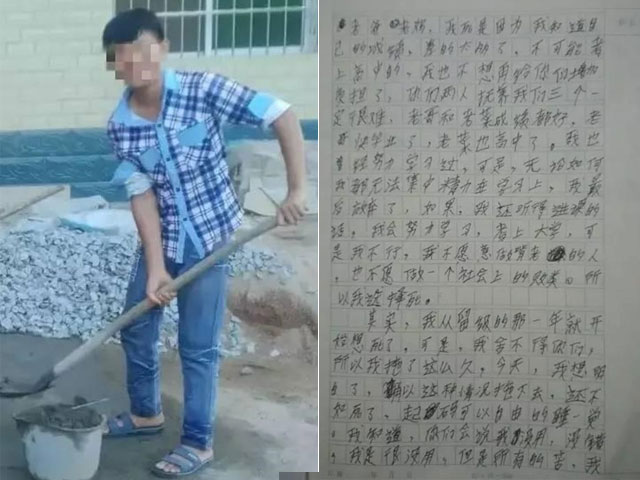 老爷老妈，我死是因为我知道自
己的成绩，差的太的了，不可能考
上高中的，我也不想再给你们增加
负担了，你们两人抚养我们三个一
定很难，老哥和芳菜成绩都好，老
哥快毕业了，老菜也高中了，我也
曾经努力学习过，可是，无论如何
我都无法集中精力在学习上，我最
后放弃了，如果，我还听得进课的
话，我会努力学习，考上大学，可
是我不行，我不愿意做啃老的人
，也不愿做一个社会上的败类。所
以我选择死。
其实，我从留级的那一年就开
始想死了，可是，我舍不得你们，
所以我拖了这么久，今天，我想明
白了，以这种情况拖下去，还不
如死了，起码可以自由的睡一觉
，我知道，你们会说我没用，没错
，我是很没用，但是所有的苦，我